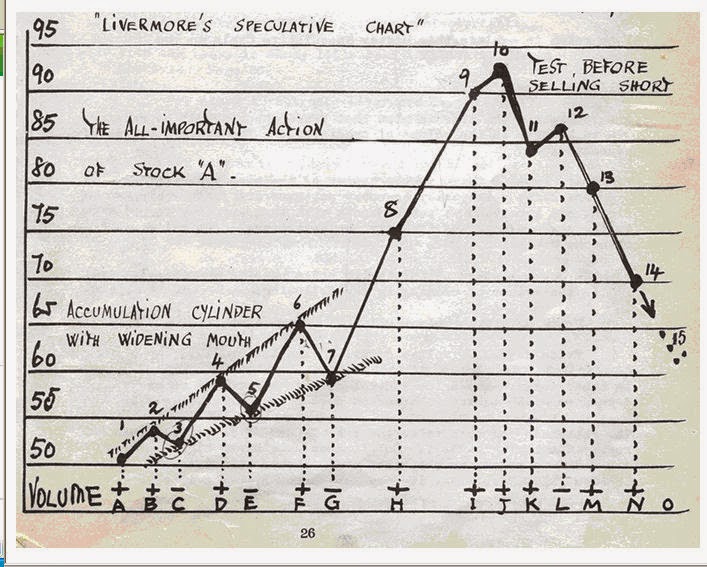 "LIVERMORE'S SPECULATIVE CHART"
95
10
TEST BEFORE
SELLING SHORT
90
9
85
THE ALL-IMPORTANT ACTION
11
12
80
OF STOCK "A".
13
75
8
70
14
65
ACCUMULATION CYLINDER
6
WITH WIDENING MOUTH
15
60
4
7
55
5
1
2
3
50
VOLUME
+ + − + − + − + + + + − + +
A B C D E F G H I J K L M N O
26